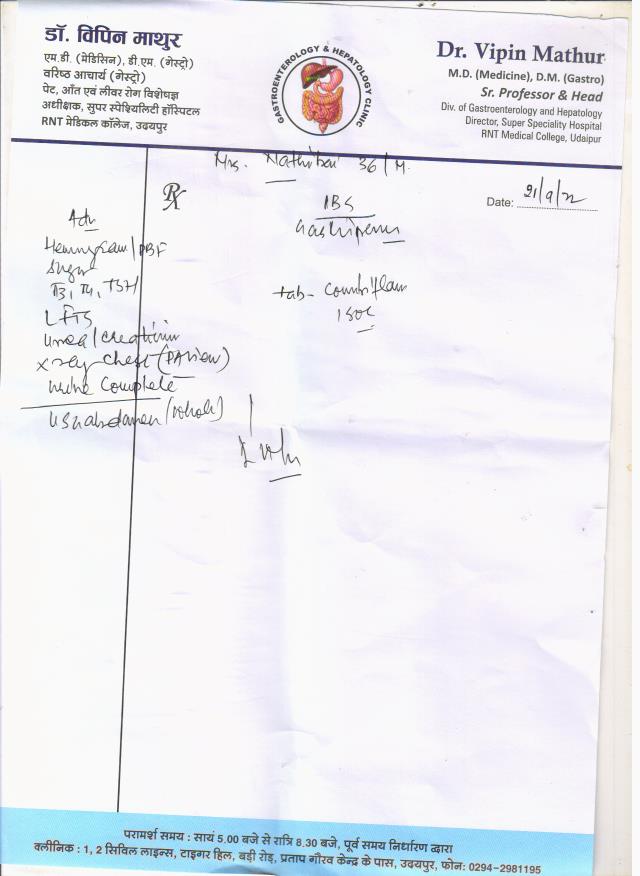 डॉ. विपिन माथुर
एम.डी. (मेडिसिन), डी.एम. (गेस्ट्रो)
वरिष्ठ आचार्य (गेस्ट्रो)
पेट, आँत एवं लीवर रोग विशेषज्ञ
अधीक्षक, सुपर स्पेशियलिटी हॉस्पिटल
RNT मेडिकल कॉलेज, उदयपुर
GASTROENTEROLOGY & HEPATOLOGY CLINIC
Dr. Vipin Mathur
M.D. (Medicine), D.M. (Gastro)
Sr. Professor & Head
Div. of Gastroenterology and Hepatology
Director, Super Speciality Hospital
RNT Medical College, Udaipur
Mrs. Nathibai 36/M.
Rx
Date: 21/9/22
IBS
Adv
Hemogram/PBF
Sugar
T3, T4, TSH
LFTS
Urea/creatinin
X-ray chest (PA view)
Urine Complete
USG abdomen (whole)
tab-
परामर्श समय : सायं 5.00 बजे से रात्रि 8.30 बजे, पूर्व समय निर्धारण द्वारा
क्लीनिक : 1, 2 सिविल लाइन्स, टाइगर हिल, बड़ी रोड़, प्रताप गौरव केन्द्र के पास, उदयपुर, फोन: 0294-2981195